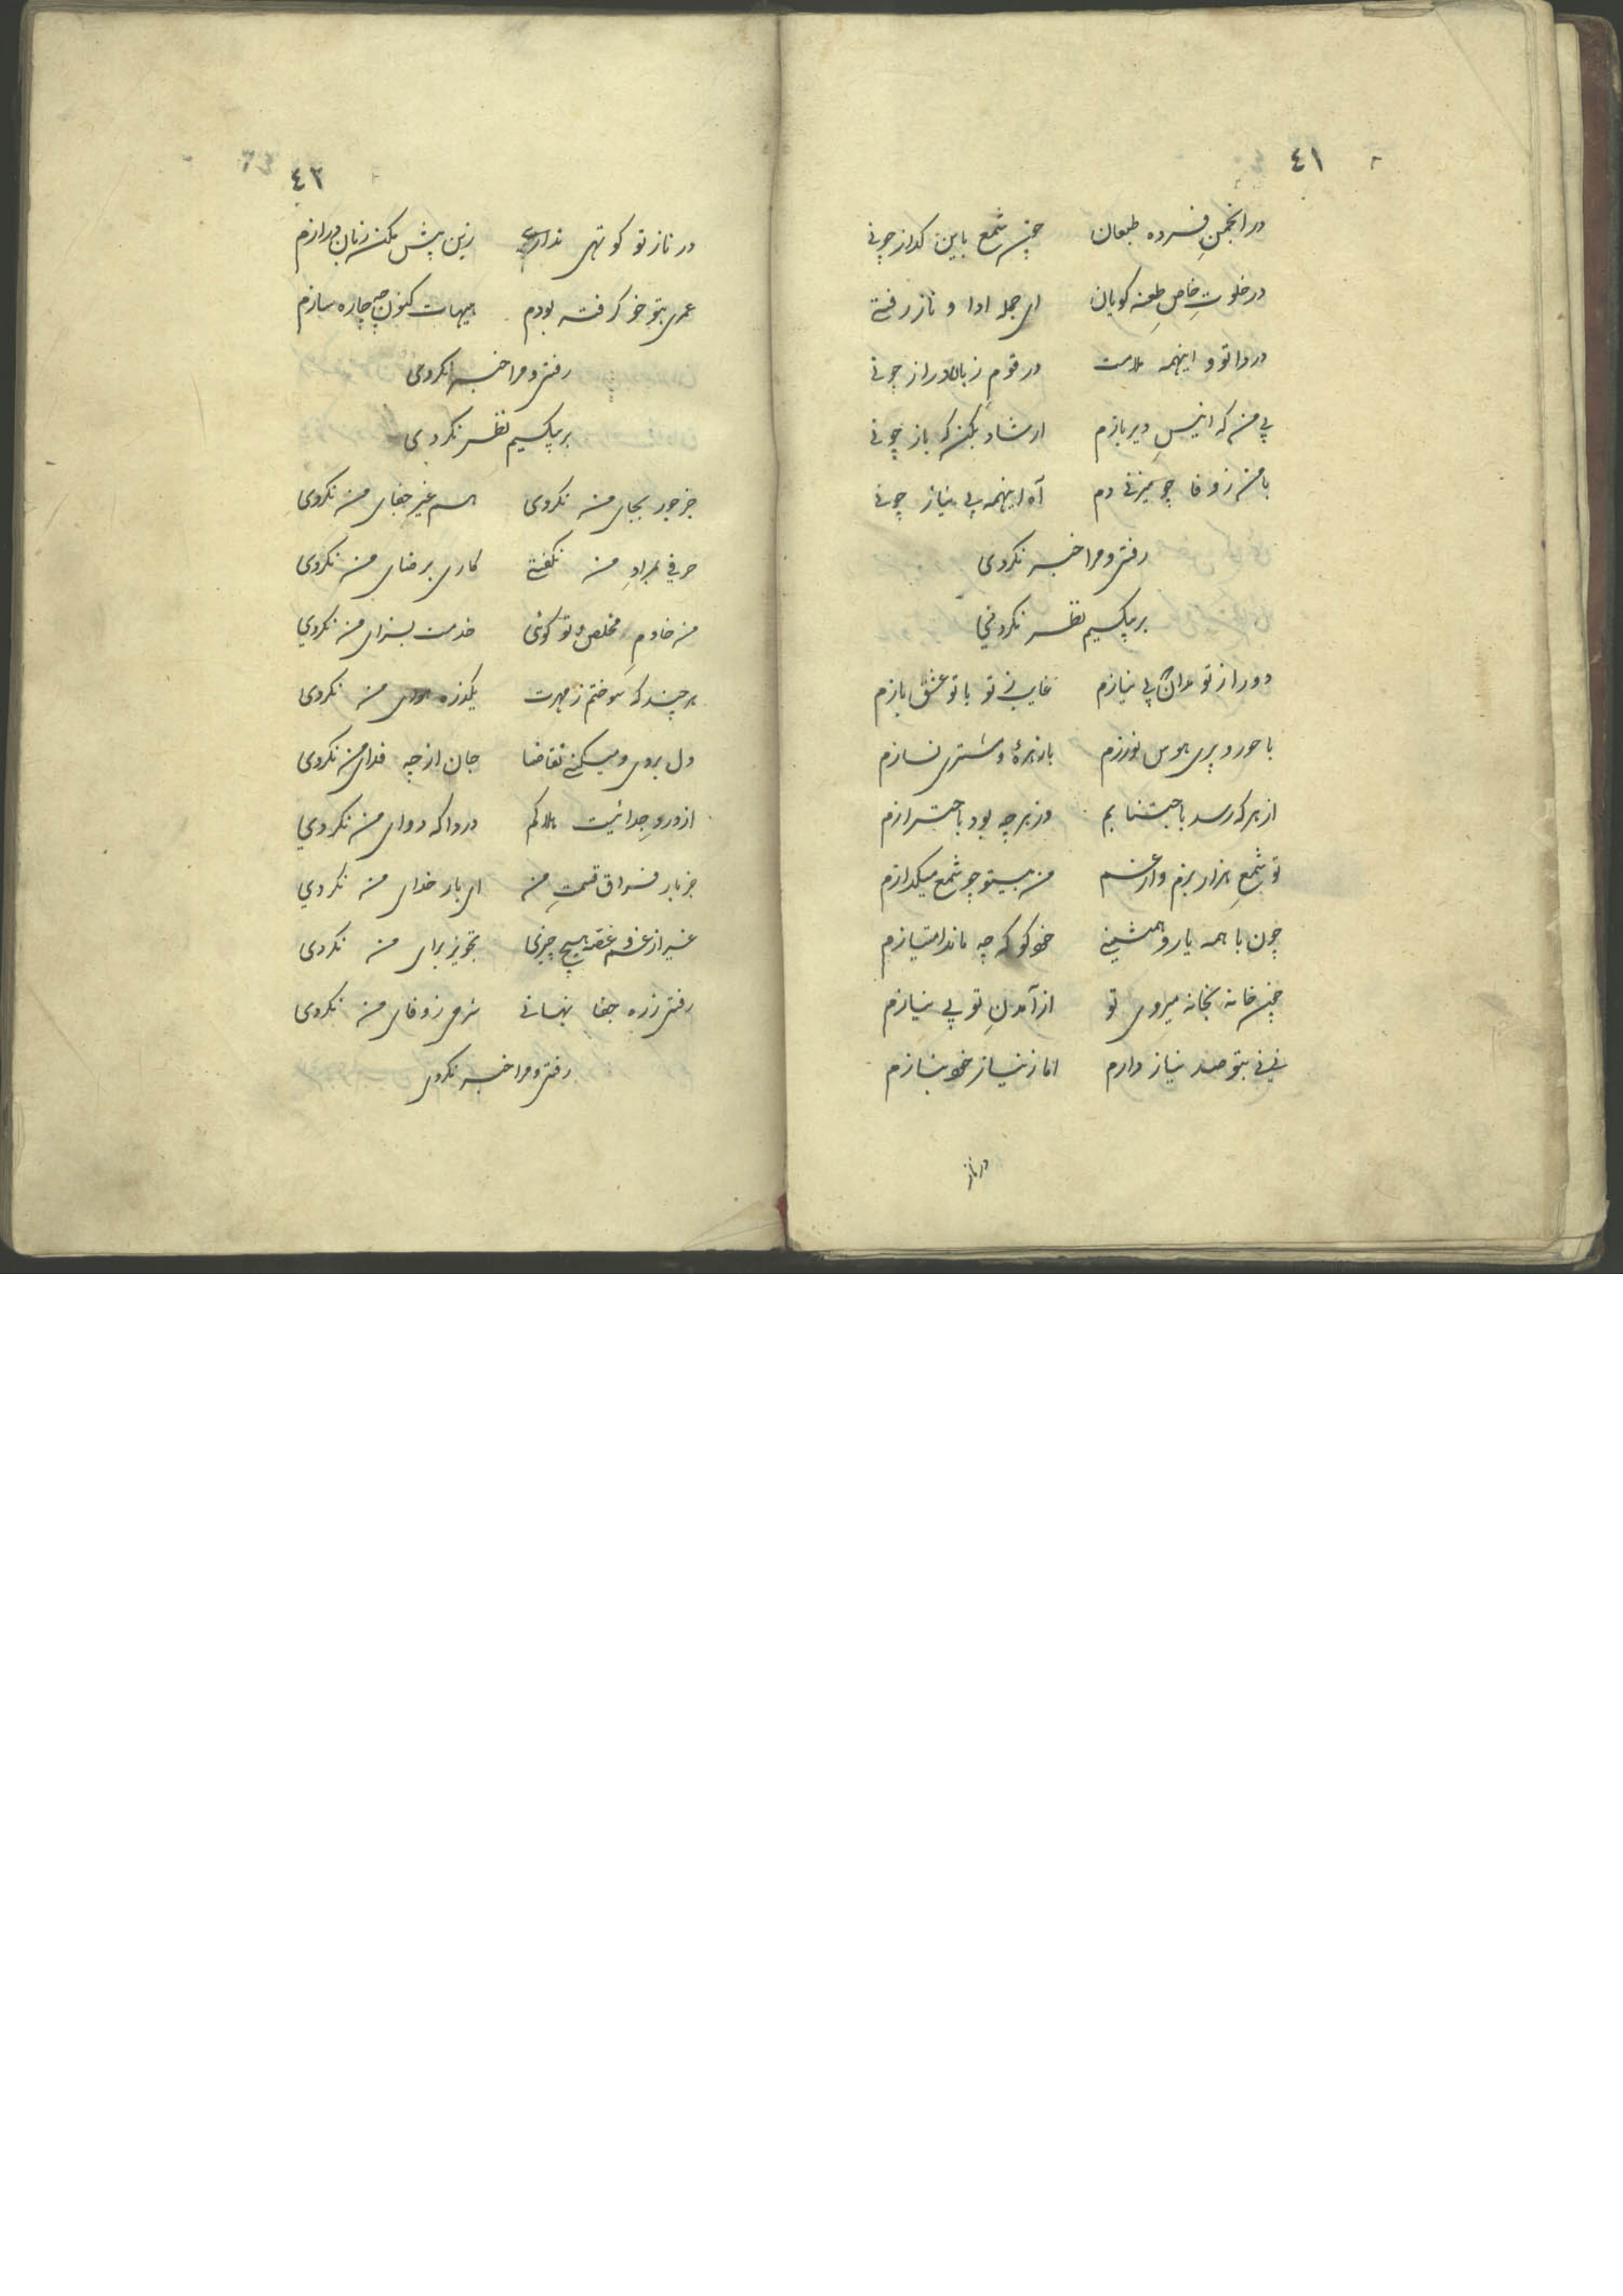 ٤١
در انجمنِ فسرده طبعان چون شمع باین کداز چونی
در خلوتِ خاصِ طعنه کویان ای جمله ادا و ناز رفتی
دردا تو و اینهمه ملامت در قومِ زبان دراز چونی
بی من که انیسِ دیر بازم ارشاد بکن که باز چونی
با من ز وفا چو میزنی دم آه اینهمه بی نیاز چونی
رفتی و مرا خبر نکردی
بر بیکسیم نظر نکردی
دور از تو مدان بی نیازم غایب نی تو با تو عشق بازم
با حور و پری هوس نورزم با زهرهٔ و مشتری نسازم
از هر که رسد باجتنابم وز هر چه بود باحترازم
تو شمعِ هزار بزم و از غم من بیتو چو شمع میکدازم
چون با همه یار و همنشینی خود کو که چه ماند امتیازم
چون خانه بخانه میروی تو از آمدنِ تو بی نیازم
نی نی بتو صد نیاز دارم اما ز نیاز خود بنازم
در ناز
٤٢
در ناز تو کوتهی نداری زین پیش مکن زبان درازم
عمری بتو خو کرفته بودم هیهات کنون چه چاره سازم
رفتی و مرا خبر نکردی
بر بیکسیم نظر نکردی
جز جور بجای من نکردی غیر جفای من نکردی
حرفی بمرادِ من نکفتی کاری برضای من نکردی
من خادمِ مخلص و تو کوئی خدمت بسزای من نکردی
هر چند که سوختم ز مهرت یکذره من نکردی
دل بردی و میکنی تقاضا جان از چه فدای من نکردی
از درد جدائیت هلاکم دردا که دوای من نکردی
جز بار فراق قسمتِ من ای بار خدای من نکردی
غیر از غم و غصه هیچ چیزی تجویز برای من نکردی
رفتی ز ره جفا نهانی شرمی ز وفای من نکردی
رفتی و مرا خبر نکردی